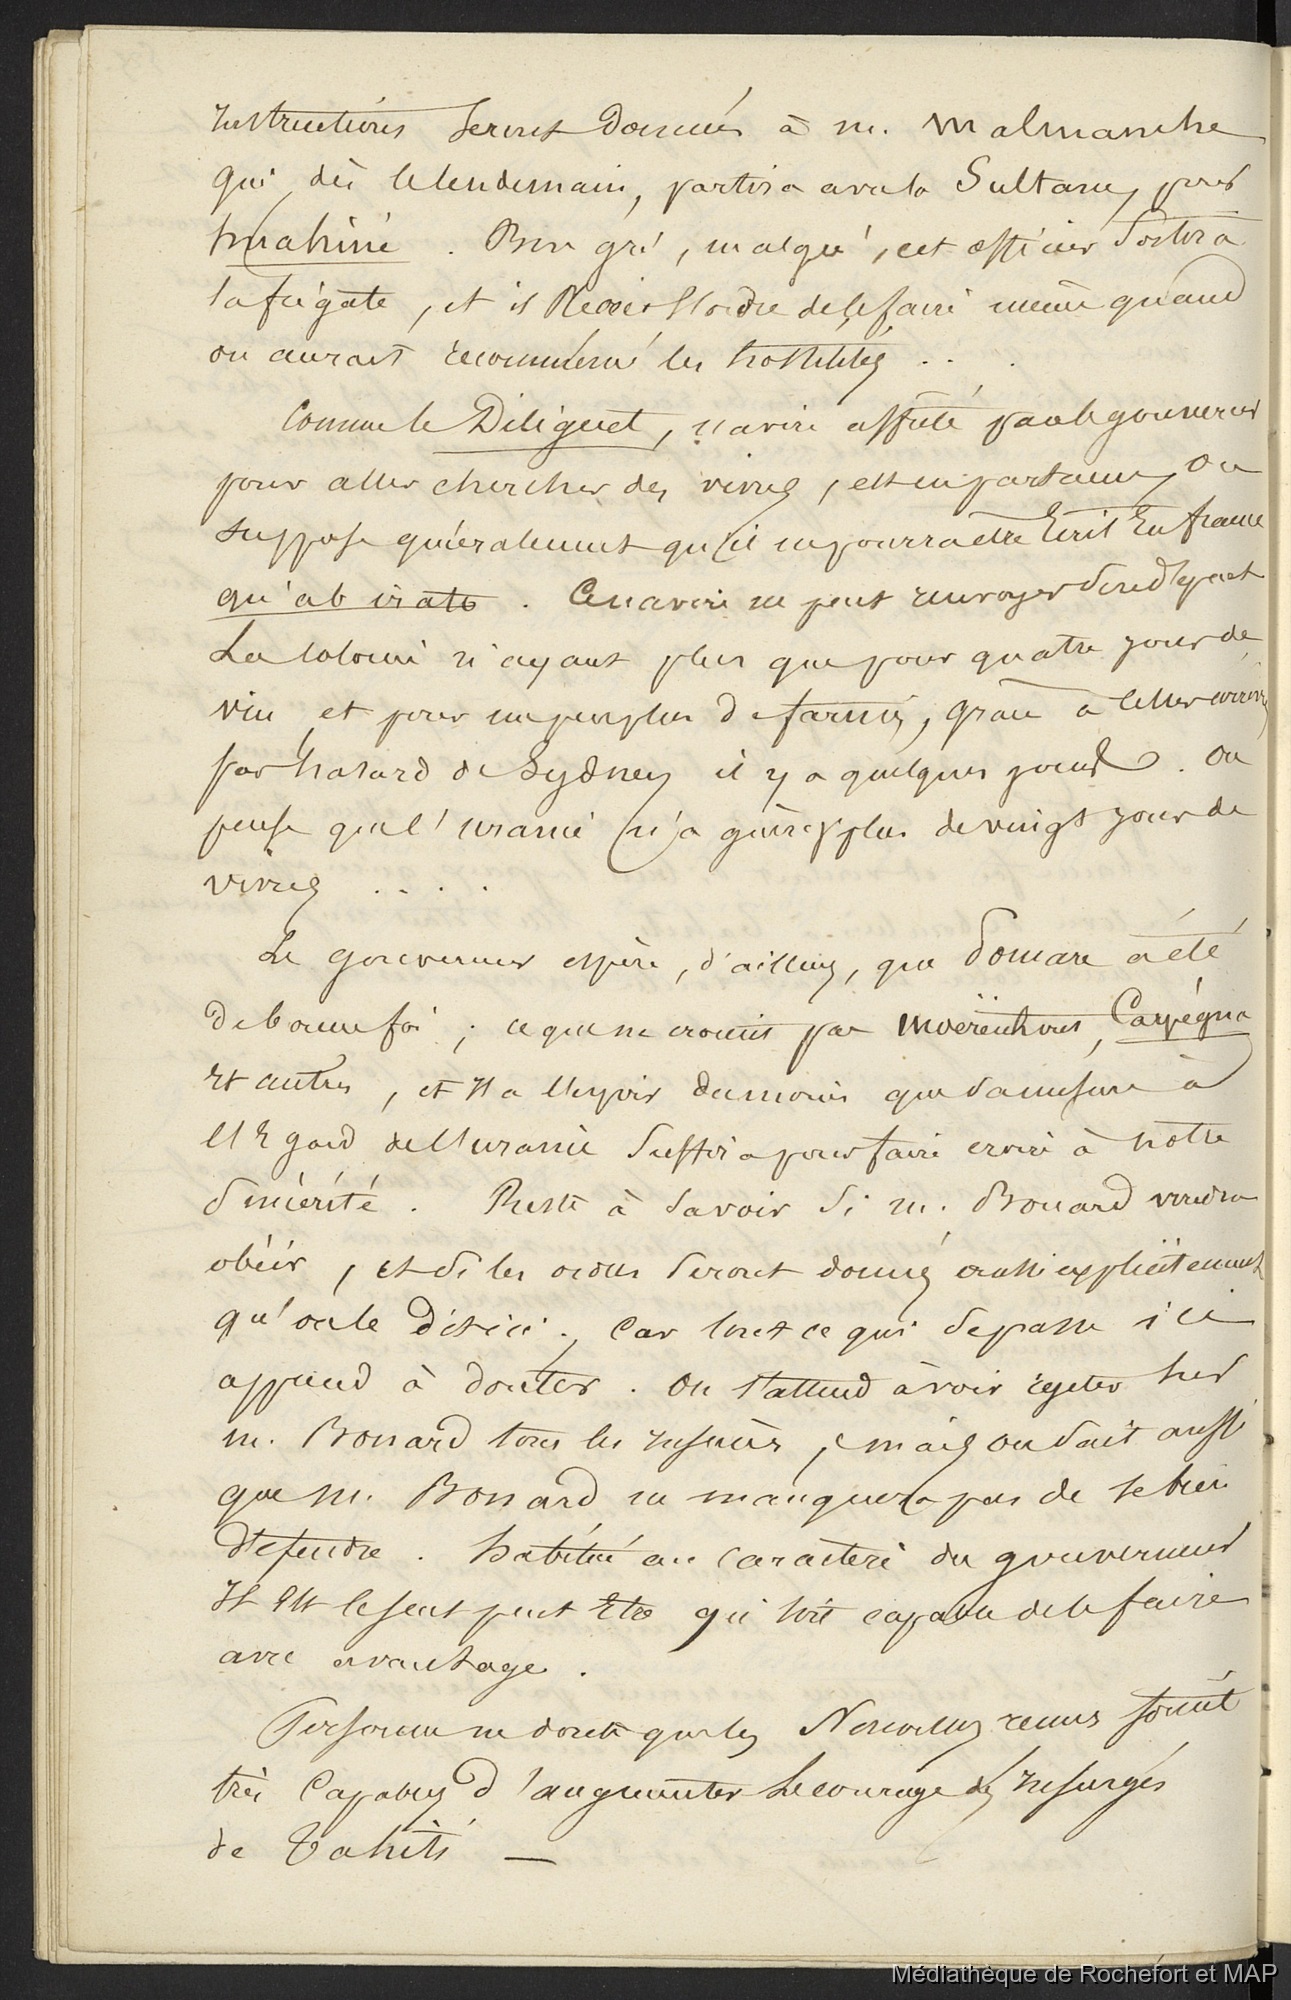 instructions seront données à m. Malmanche
qui, dès le lendemain, partira avec la Sultane, pour
huahiné. Bon gré, malgré, cet officier sortira
la frégate, et il Recoit l'ordre de le faire même quand
on aurait recommencé les hostilités . . .
Comme le Diligent, navire affrété par le gouverneur
pour aller chercher des vivres, est en partance, on
suppose généralement qu'il ne pourra être Ecrit En france
qu'ab irato. Ce navire ne peut renvoyer son départ
La Colonie n'ayant plus que pour quatre jours de
vin, et pour un peu plus de farine, grâce à celle arrivée
par hasard de Sydney il y a quelques jours. On
pense que l'uranie n'a guère plus de vingt jours de
vivres . . . .
Le gouverneur espère, d'ailleurs, que Pomaré a été
de bonne foi ; ce que ne croient pas Moërenhout, Carpégna
Et autres, et Il a l'Espoir du moins que sa mesure à
l'Egard de l'uranie suffira pour faire croire à notre
sincérité. Reste à savoir si m. Bonard voudra
obéir, et si les ordres seront donnés aussi explicitement
qu'on le dit ici ; Car tout ce qui se passe ici
apprend à douter. On s'attend à voir rejeter sur
m. Bonard tous les insuccès, mais on sait aussi
que m. Bonard ne manquera pas de se bien
défendre. habitué au caractère du gouverneur
Il Est le seul peut Etre qui soit capable de le faire
avec avantage.
Personne ne doute que les Nouvelles reçues soient
très Capables d'augmenter le courage des Insurgés
de Tahiti —
Médiathèque de Rochefort et MAP